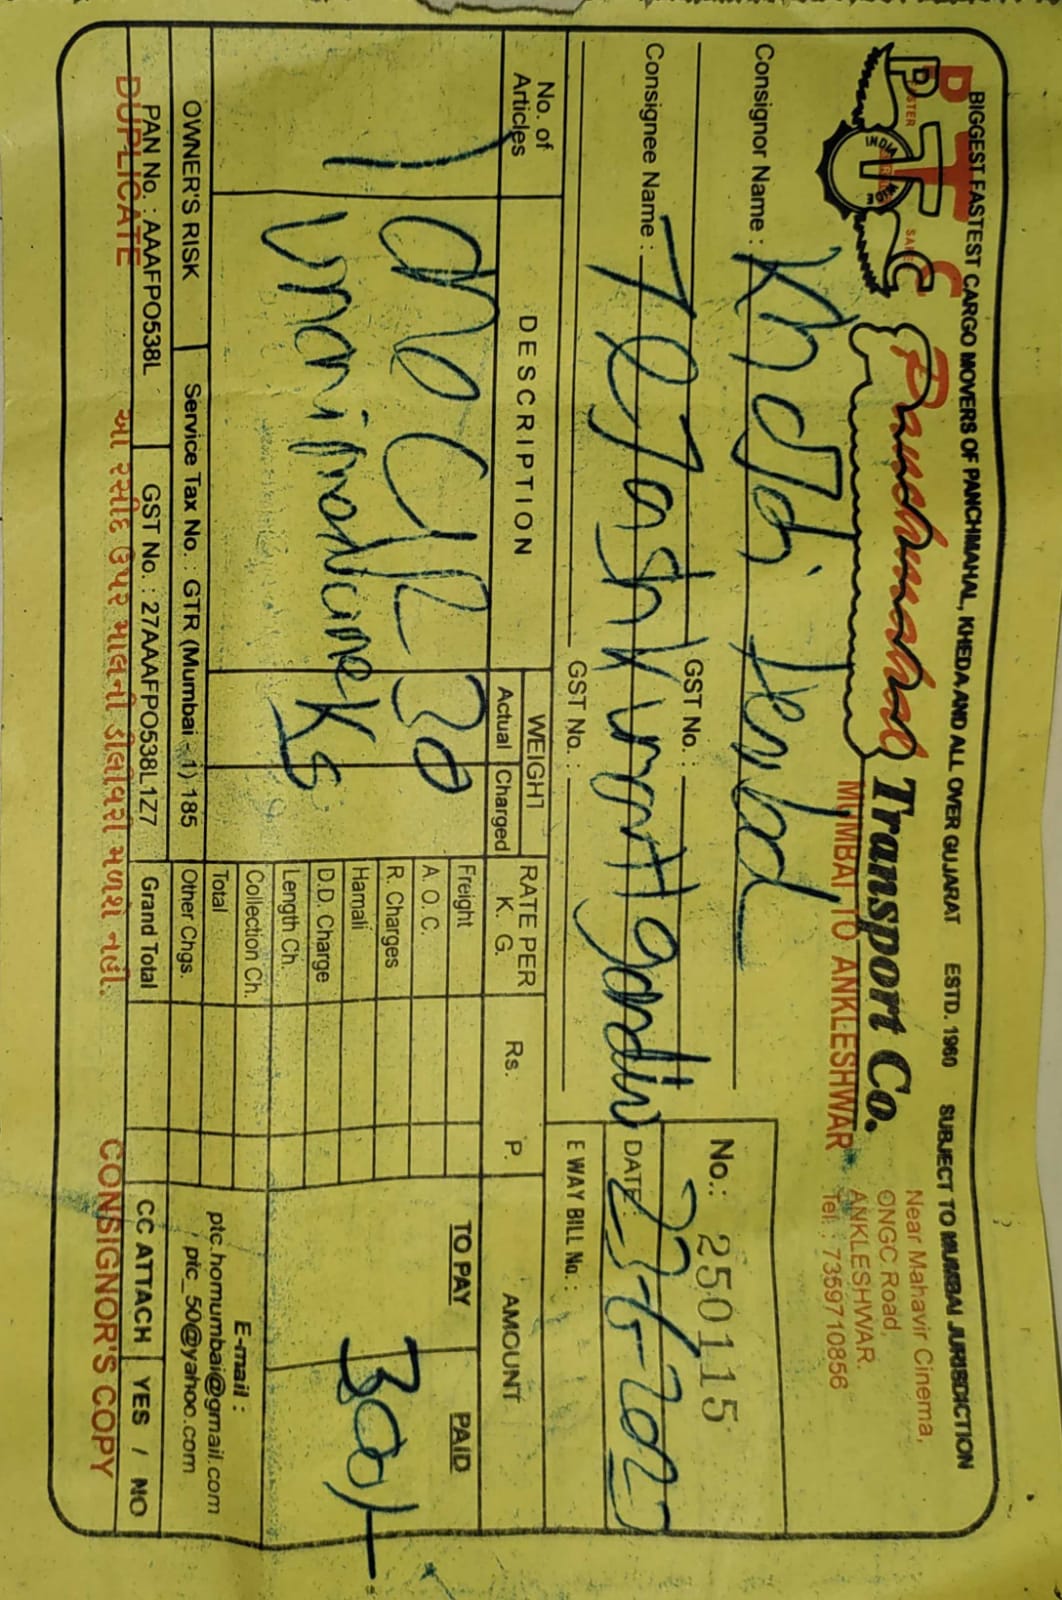 BIGGEST FASTEST CARGO MOVERS OF PANCHMAHAL, KHEDA AND ALL OVER GUJARAT ESTD. 1960 SUBJECT TO MUMBAI JURISDICTION
PTC
INDIA
Panchmahal Transport Co.
MUMBAI TO ANKLESHWAR
Near Mahavir Cinema,
ONGC Road,
ANKLESHWAR.
Tel.: 7359710856
No.: 250115
Consignor Name :
GST No. :
DATE 23-6-202
Consignee Name :
GST No. :
E WAY BILL No. :
No. of Articles
DESCRIPTION
WEIGHT
Actual Charged
RATE PER K. G.
Rs. P.
AMOUNT
TO PAY PAID
1
30
Kg
300/-
Freight
A. O. C.
R. Charges
Hamali
D.D. Charge
Length Ch.
Collection Ch.
Total
Other Chgs.
Grand Total
E-mail :
ptc.homumbai@gmail.com
ptc_50@yahoo.com
OWNER'S RISK
Service Tax No. : GTR (Mumbai - 1) 185
PAN No. : AAAFPO538L
GST No. : 27AAAFPO538L1Z7
CC ATTACH YES / NO
DUPLICATE
આ રસીદ ઉપર માલની ડીલીવરી મળશે નહી.
CONSIGNOR'S COPY